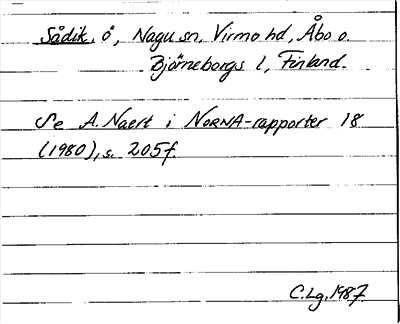 Sådik, ö, Nagu sn, Virmo hd, Åbo o.
Björneborgs l, Finland.
Se A. Naert i NORNA-rapporter 18
(1980), s. 205f.
C.Lg. 1987